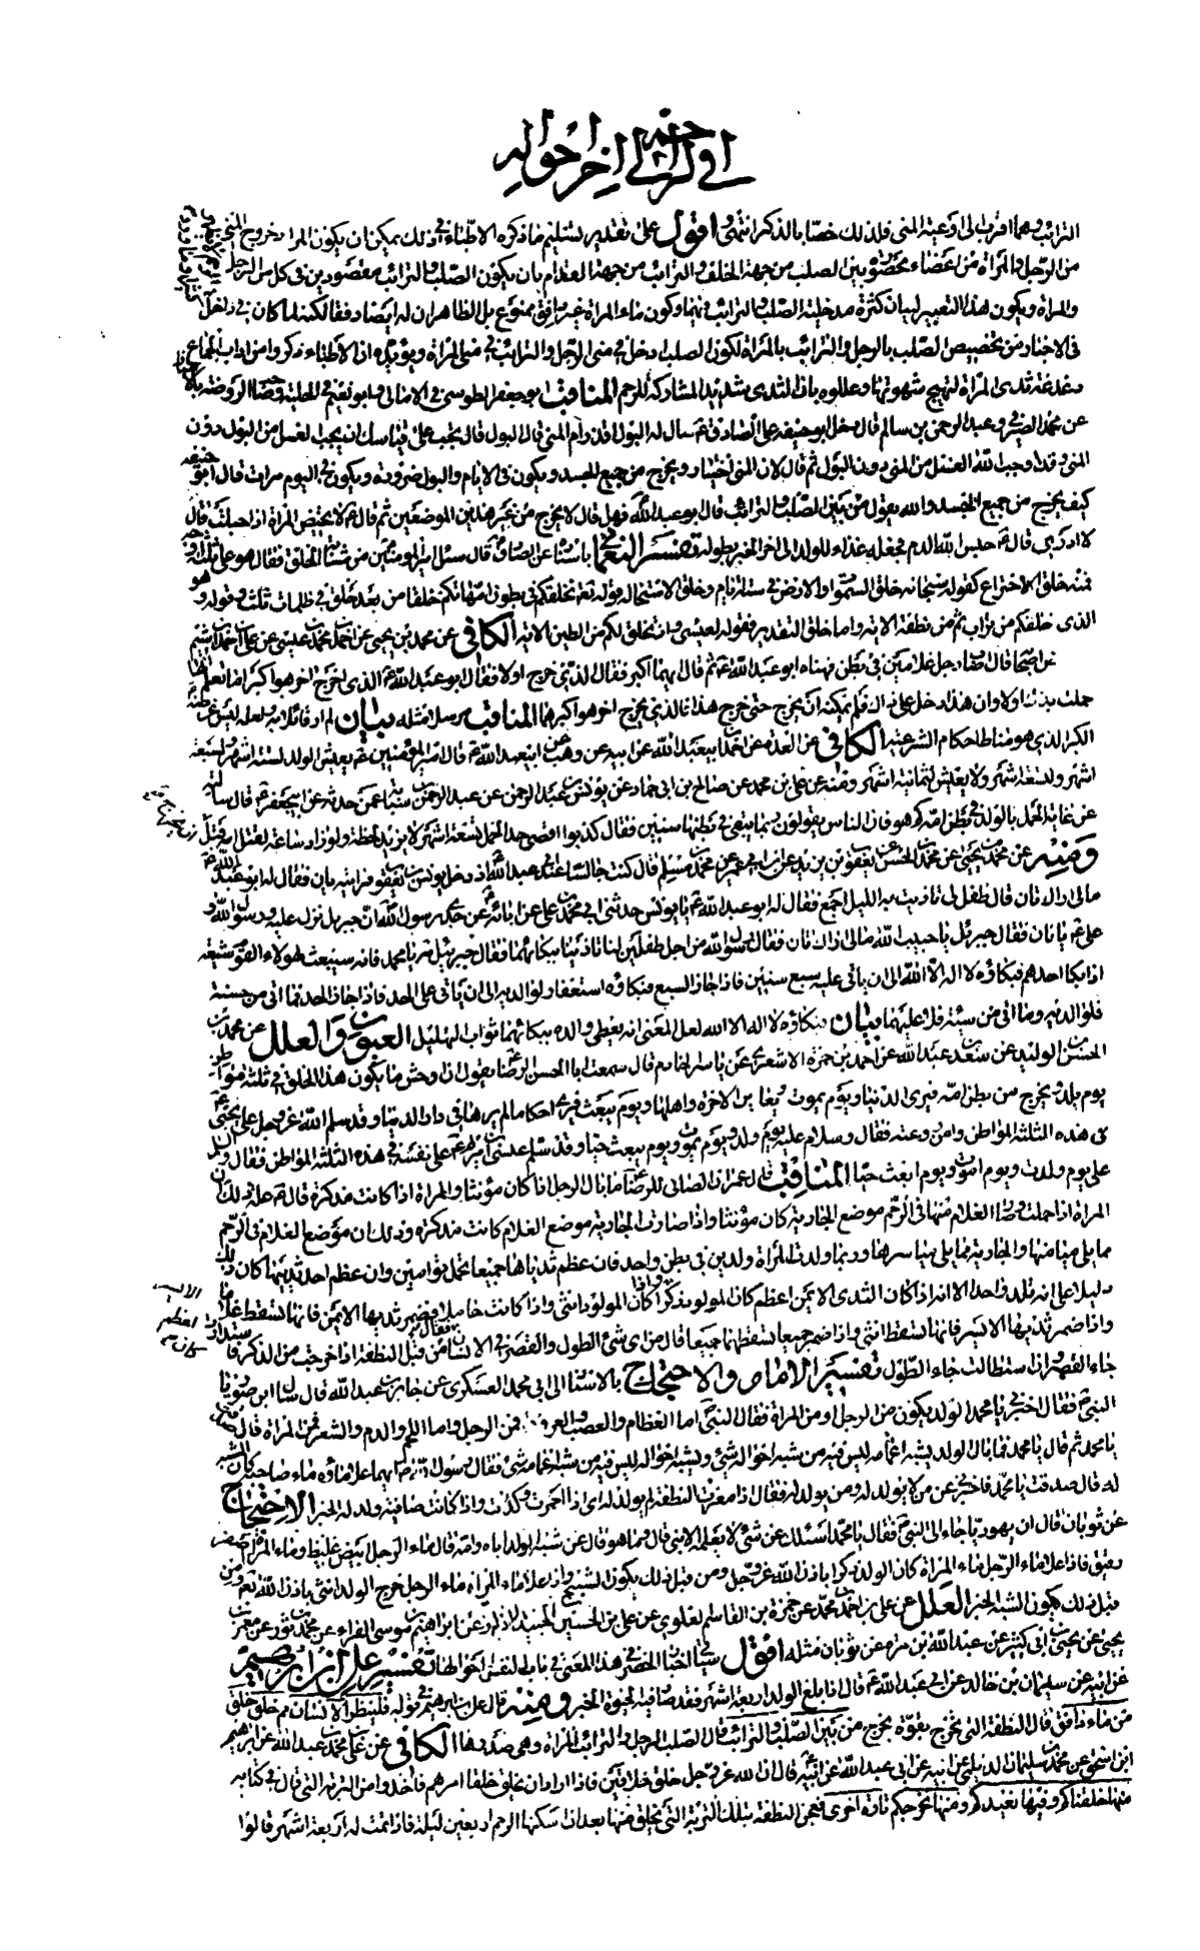 الترائب وهما اقرب الى اوعية المنى فلذلك خصا بالذكر انتهى و اقول على تقدير تسليم ما ذكره الاطباء فى ذلك يمكن ان يكون المراد خروج المنى
من الرجل والمرأة من اعضاء محصورة بين الصلب من جهة الخلف والترائب من جهة القدام بان يكون الصلب والترائب مقصودين فى كل من الرجل
والمراة ويكون هذا التعبير لبيان كثرة مدخلية الصلب والترائب فيهما وكون ماء المراة غير دافق ممنوع بل الظاهر ان له ايضا دفقا لكنه لما كان فى داخل
فى الاخبار من تخصيص الصلب بالرجل والترائب بالمراة لكون الصلب ادخل فى منى الرجل والترائب فى منى المراة ويؤيده ان الاطباء ذكروا من اداب الجماع
دغدغة ثدى المراة لتهيج شهوتها وعللوه بان الثدى شديد المشاركة للرحم المناقب ابو جعفر الطوسى فى الامالى وابو نعيم فى الحلية وصاحب الروضة
عن محمد الصيرفى وعبد الرحمن بن سالم قال دخل ابو حنيفه على الصادق ع سال له البول اقذر ام المنى قال البول قال يجب على قياسك ان يجب الغسل من البول دون
المنى وقد اوجب الله الغسل من المنى دون البول ثم قال لان المنى اختيار ويخرج من جميع الجسد ويكون فى الايام والبول ضرورة ويكون فى اليوم مرات قال ابو حنيفه
كيف يخرج من جميع الجسد والله يقول من بين الصلب والترائب قال ابو عبد الله فهل قال لا يخرج من غير هذين الموضعين ثم قال ع لم لا تحيض المراة اذا حبلت قال
لا ادرى قال ع حبس الله الدم فجعله غذاء للولد الى اخر الخبر بطوله تفسير النعمانى باسناده عن الصادق قال سئل امير المؤمنين عن متشابه الخلق فقال هو على ثلثة
فمنه خلق الاختراع كقوله سبحانه خلق السموات والارض فى ستة ايام وخلق الاستحالة قوله تعالى يخلقكم فى بطون امهاتكم خلقا من بعد خلق فى ظلمات ثلث وقوله هو
الذى خلقكم من تراب ثم من نطفة الاية واما خلق التقدير فقوله لعيسى واذ تخلق لكم من الطين الاية الكافى عن محمد بن يحيى عن احمد بن محمد بن عيسى عن على بن احمد بن اشيم
عن بعض اصحابنا قال اصاب رجل غلامين فى بطن فهناه ابو عبد الله ع ثم قال ايهما اكبر فقال الذى خرج اولا فقال ابو عبد الله ع الذى خرج اخرا هو اكبر اما تعلم انها
حملت بذاك اولا وان هذا دخل على ذاك فلم يمكنه ان يخرج حتى خرج هذا فالذى يخرج اخرا هو اكبرهما المناقب مرسلا مثله بيان لم ار قائلا به ولعله ليس غرضه
الكبر الذى هو مناط احكام الشرعية الكافى عن العدة عن احمد بن ابى عبد الله عن ابيه عن وهب عن ابى عبد الله ع قال قال امير المؤمنين ع يعيش الولد لستة اشهر ولسبعة
اشهر ولتسعة اشهر ولا يعيش لثمانية اشهر ومنه عن على بن محمد عن صالح بن ابى حماد عن يونس بن عبد الرحمن عن عبد الرحمن بن سيابة عمن حدثه عن ابى جعفر ع قال سالته
عن غاية الحمل بالولد فى بطن امه كم هو فان الناس يقولون ربما بقى فى بطنها سنين فقال كذبوا اقصى حد الحمل تسعة اشهر لا يزيد لحظة ولو زاد ساعة لقتل امه قبل
ومنه عن محمد بن يحيى عن محمد بن الحسن عن يعقوب بن يزيد عن ابن ابى عمير عن محمد بن مسلم قال كنت جالسا عند ابى عبد الله اذ دخل يونس بن يعقوب فرايته يان فقال له ابو عبد الله ع
مالى اراك تان قال طفل لى تاذيت به الليل اجمع فقال له ابو عبد الله ع يا يونس حدثنى ابى محمد بن على عن ابائه عن جدى رسول الله ان جبرئيل نزل عليه ورسول الله و
على ع يانان فقال جبرئيل يا حبيب الله مالى اراك تان فقال رسول الله من اجل طفلين لنا تاذينا ببكائهما فقال جبرئيل مه يا محمد فانه سيبعث لهؤلاء القوم شيعة
اذا بكا احدهم فبكاؤه لا اله الا الله الى ان ياتى عليه سبع سنين فاذا جاز السبع فبكاؤه استغفار لوالديه الى ان ياتى على الحد فاذا جاز الحد فما اتى من حسنة
فلوالديه وما اتى من سيئة فلا عليهما بيان فبكاؤه لا اله الا الله لعل المعنى انه يعطى والده ببكائهما ثواب التهليل العيون والعلل عن محمد بن
الحسن بن الوليد عن سعد بن عبد الله عن احمد بن حمزة الاشعرى عن ياسر الخادم قال سمعت ابا الحسن الرضا يقول ان اوحش ما يكون هذا الخلق فى ثلثة مواطن
يوم يلد ويخرج من بطن امه فيرى الدنيا ويوم يموت فيعاين الاخرة واهلها ويوم يبعث فيرى احكاما لم يرها فى دار الدنيا وقد سلم الله عز وجل على يحيى ع
فى هذه الثلثة المواطن وامن روعته فقال وسلام عليه يوم ولد ويوم يموت ويوم يبعث حيا وقد سلم عيسى بن مريم ع على نفسه فى هذه الثلثة المواطن فقال والسلم
على يوم ولدت ويوم اموت ويوم ابعث حيا المناقب قال عمران الصابى للرضا ما بال الرجل اذا كان مؤنثا والمراة اذا كانت مذكرة قال ع علة ذلك ان
المراة اذا حملت وصار الغلام منها فى الرحم موضع الجارية كان مؤنثا واذا صارت الجارية موضع الغلام كانت مذكرة وذلك ان موضع الغلام فى الرحم
مما يلى ميامنها والجارية مما يلى مياسرها وربما ولدت المراة ولدين فى بطن واحد فان عظم ثدياها جميعا تحمل توامين وان عظم احد ثدييها كان ذلك
دليلا على انه تلد واحدا الا انه اذا كان الثدى الايمن اعظم كان المولود ذكرا واذا كان الايسر اعظم كان المولود انثى واذا كانت حاملا فضمر ثديها الايمن فانها تسقط غلاما
واذا ضمر ثديها الايسر فانها تسقط انثى واذا ضمرا جميعا تسقطهما جميعا قال من اى شئ الطول والقصر فى الانسان فقال من قبل النطفة اذا خرجت من الذكر فاستدارت
جاء القصر وان استطالت جاء الطول تفسير الامام والاحتجاج بالاسناد الى ابى محمد العسكرى عن جابر بن عبد الله قال سال ابن صوريا
النبى فقال اخبرنى يا محمد الولد يكون من الرجل او من المراة فقال النبى اما العظام والعصب والعروق فمن الرجل واما اللحم والدم والشعر فمن المراة قال صدقت
يا محمد ثم قال يا محمد فما بال الولد يشبه اعمامه ليس فيه من شبه اخواله شئ ويشبه اخواله ليس فيه من شبه اعمامه شئ فقال رسول الله ايهما علا ماؤه ماء صاحبه كان الشبه
له قال صدقت يا محمد فاخبرنى عن من لا يولد له ومن يولد له فقال اذا مغرت النطفة لم يولد له اى اذا احمرت وكدرت واذا كانت صافية ولد له الخبر الاحتجاج
عن ثوبان قال ان يهوديا جاء الى النبى فقال يا محمد اسئلك عن شئ لا يعلمه الا نبى قال وما هو قال عن شبه الولد اباه وامه قال ماء الرجل ابيض غليظ وماء المراة اصفر
رقيق فاذا علا ماء الرجل ماء المراة كان الولد ذكرا باذن الله عز وجل ومن قبل ذلك يكون الشبه واذا علا ماء المراة ماء الرجل خرج الولد انثى باذن الله تعالى ومن
قبل ذلك يكون الشبه الخبر العلل عن على بن احمد بن محمد عن حمزة بن القاسم العلوى عن على بن الحسين بن الجنيد البزاز عن ابراهيم بن موسى الفراء عن محمد بن ثور عن معمر بن
يحيى عن يحيى بن ابى كثير عن عبد الله بن مرة عن ثوبان مثله اقول سياتى اخبار الخضر فى هذا المعنى فى باب النفس احوالها تفسير على بن ابراهيم
عن ابيه عن سليمان بن خالد عن ابى عبد الله ع قال اذا بلغ الولد اربعة اشهر فقد صار فيه الحيوة الخبر ومنه قال على بن ابراهيم فى قوله فلينظر الانسان مم خلق خلق
من ماء دافق قال النطفة التى تخرج بقوة يخرج من بين الصلب والترائب قال الصلب للرجل والترائب المراة وهى صدرها الكافى عن على بن محمد بن عبد الله عن ابراهيم
ابن اسحق عن محمد بن سليمان الديلمى عن ابيه عن ابى عبد الله عن ابيه قال ان الله عز وجل خلق خلاقين فاذا اراد ان يخلق خلقا امرهم فاخذوا من التربة التى قال فى كتابه
منها خلقناكم وفيها نعيدكم ومنها نخرجكم تارة اخرى فعجن النطفة بتلك التربة التى يخلق منها بعد ان سكنها الرحم اربعين ليلة فاذا تمت له اربعة اشهر قالوا